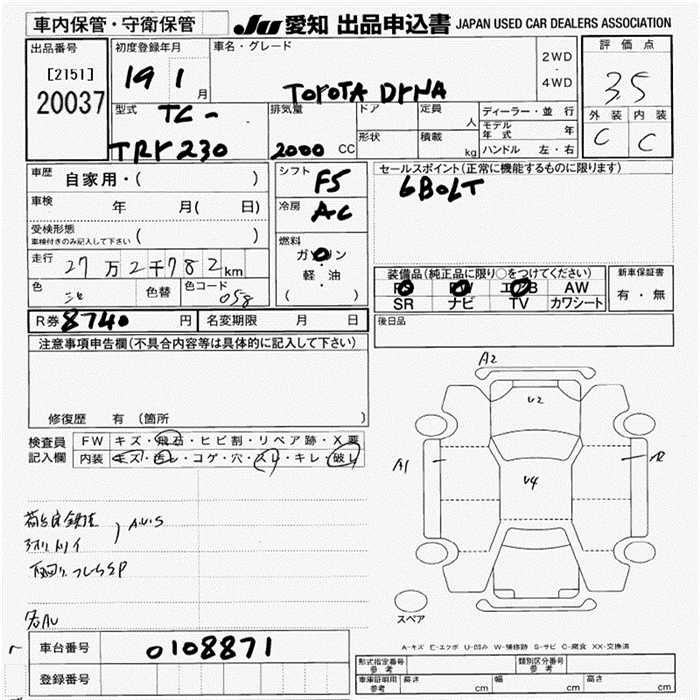 車内保管・守衛保管
JU 愛知 出品申込書 JAPAN USED CAR DEALERS ASSOCIATION
出品番号
[2151]
20037
初度登録年月
19 1 月
車名・グレード
TOYOTA DYNA
2WD
・
4WD
評価点
3.5
外装 内装
C C
型式
TC -
TRY230
排気量
2000 CC
ドア
形状
定員
人
積載
kg
ディーラー・並行
モデル年式 年
ハンドル 左・右
車歴
自家用・( )
車検
年 月( 日)
受検形態
車検付きのみ記入して下さい ( )
走行
27万2千782km
色
色替
色コード
058
シフト
F5
冷房
AC
燃料
ガソリン
・
軽・油
( )
セールスポイント(正常に機能するものに限ります)
6BOLT
装備品(純正品に限り○をつけてください)
AW
SR ナビ TV カワシート
新車保証書
有・無
R券 8740 円
名変期限 月 日
後日品
注意事項申告欄(不具合内容等は具体的に記入して下さい)
修復歴 有 (箇所 )
検査員
記入欄
FW キズ・飛石・ヒビ割・リペア跡・X要
内装 キズ・汚レ・コゲ・穴・スレ・キレ・破レ
A2
U2
A1
U4
スペア
A-キズ E-エクボ U-凹み W-補修跡 S-サビ C-腐食 XX-交換済
車台番号
0108871
登録番号
形式指定番号
参考
類別区分番号
参考
車庫証明用
参考
長さ cm
幅 cm
高さ cm